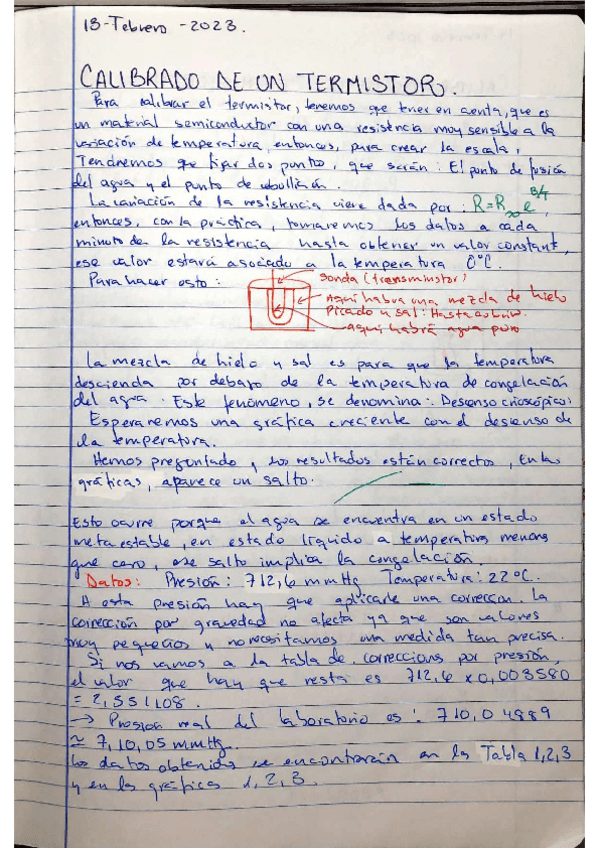 13-Febrero-2023.
CALIBRADO DE UN TERMISTOR.
Para calibrar el termistor, tenemos que tener en cuenta, que es
un material semiconductor con una resistencia muy sensible a la
variación de temperatura, entonces, para crear la escala,
Tendremos que fijar dos puntos, que serán: El punto de fusión
del agua y el punto de ebullición.
La variación de la resistencia viene dada por: R=R∞e^B/T,
entonces, con la práctica, tomaremos los datos a cada
minuto de la resistencia hasta obtener un valor constant,
ese valor estará asociado a la temperatura 0ºC.
Para hacer esto:
sonda (transmistor)
Aquí habrá una mezcla de hielo
Picado y sal: Hasta
aquí habrá agua pura
La mezcla de hielo y sal es para que la temperatura
descienda por debajo de la temperatura de congelación
del agua. Este fenómeno, se denomina: Descenso crioscópico:
Esperaremos una gráfica creciente con el descenso de
la temperatura.
Hemos preguntado, los resultados están correctos, En las
gráficas, aparece un salto.
Esto ocurre porque el agua se encuentra en un estado
metaestable, en estado líquido a temperatura menores
que cero, ese salto implica la congelación.
Datos: Presión: 712,6 mmHg Temperatura: 22ºC.
A esta presión hay que aplicarle una correccion. la
corrección por gravedad no afecta ya que son valores
muy pequeños y no necesitamos una medida tan precisa.
Si nos vamos a la tabla de correccions por presión,
el valor que hay que resta es 712,6 x 0,003580
= 2,551108.
→ Presión real del laboratorio es: 710,04889
≃ 7,10,05 mmHg.
Los datos obtenidos se encontrarán en las Tabla 1,2,3
y en las gráficas 1,2,3.